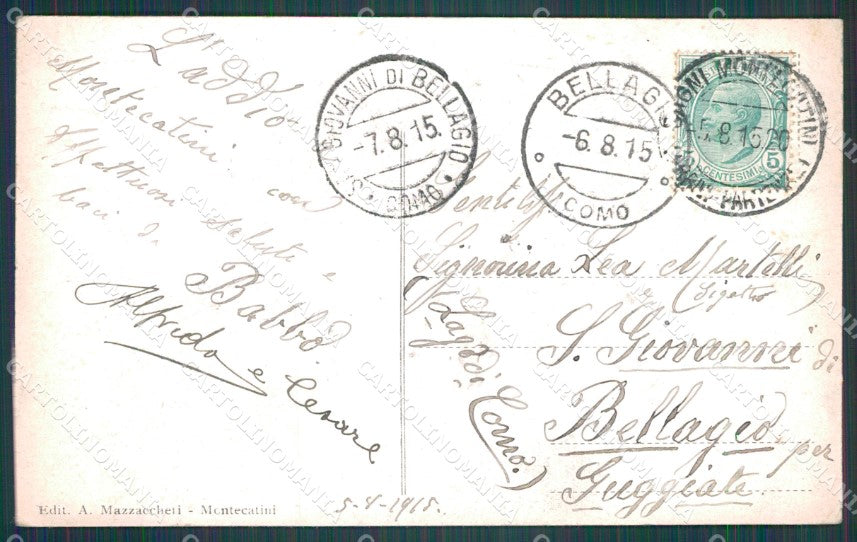 L'addio
Montecatini
affettuosi saluti e
baci di
Babbo
Alfredo e Cesare
Edit. A. Mazzaccheti - Montecatini
5-8-1915.
S. GIOVANNI DI BELLAGIO
-7.8.15.
BELLAGIO
-6.8.15
COMO
BAGNI MONTECATINI
-5.8.15 20
CENTESIMI 5
Signorina Lea Martelli
S. Giovanni di
Bellagio per
Guggiate
(Lago di Como.)
CARTOLINOMANIA